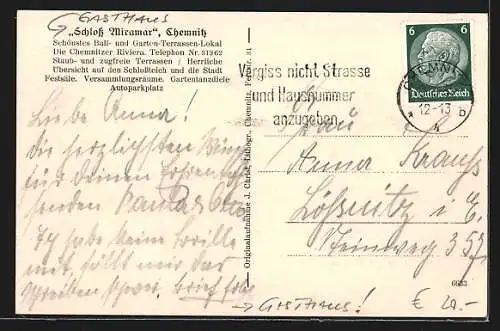 GASTHAUS
„Schloß Miramar", Chemnitz
Schönstes Ball- und Garten-Terrassen-Lokal
Die Chemnitzer Riviera. Telephon Nr. 31262
Staub- und zugfreie Terrassen / Herrliche
Übersicht auf den Schloßteich und die Stadt
Festsäle. Versammlungsräume. Gartentanzdiele
Autoparkplatz
Liebe Anna!
Die herzlichsten Wünsche
für Deinen
senden
Ich habe keine Brille
mit, fällt mir das
Schreiben schwer. Brief folgt
Originalaufnahme J. Christ, Lithogr., Chemnitz,
Vergiss nicht Strasse
und Hausnummer
anzugeben
6
6
Deutsches Reich
CHEMNITZ
12-13
* b
Frau
Anna Krauß
Lößnitz i E.
Steinweg
6633
GASTHAUS!
€ 20.-